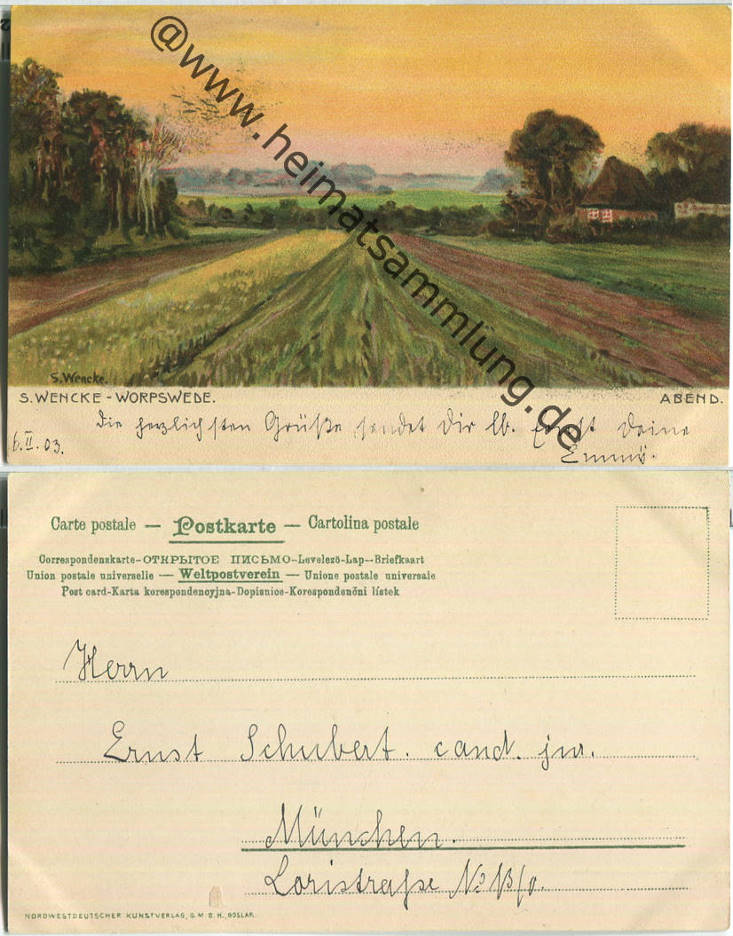 @www.heimatsammlung.de
S. Wencke.
S. WENCKE - WORPSWEDE. ABEND.
Die herzlichsten Grüße sendet Dir lb. Ernst Deine
6.II.03. Emmÿ.
Carte postale — Postkarte — Cartolina postale
Correspondenskarte-ОТКРЫТОЕ ПИСЬМО-Levelező-Lap--Briefkaart
Union postale universelle — Weltpostverein — Unione postale universale
Post card-Karta korespondencyjna-Dopisnice-Korespondenční lístek
Herrn
Ernst Schubert. cand. jur.
München.
Loristraße No
NORDWESTDEUTSCHER KUNSTVERLAG, G.M.B.H., GOSLAR.